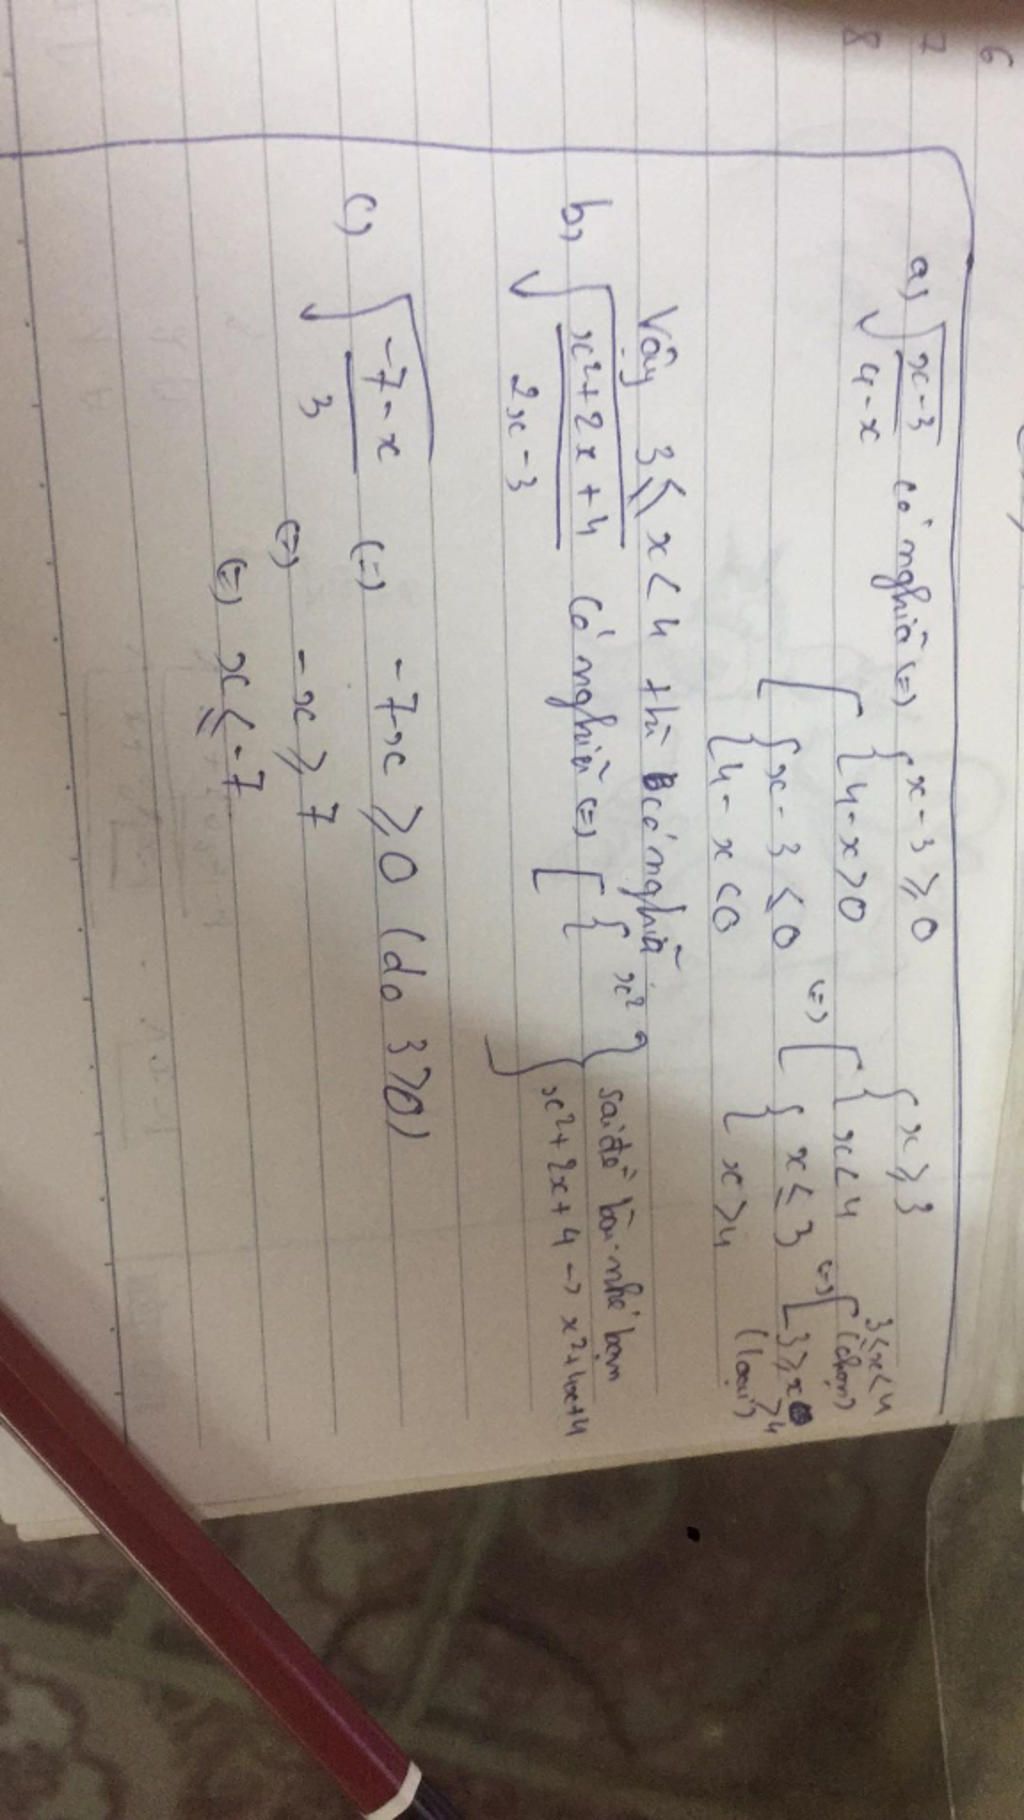 6
7
8
a, √(x-3)/(4-x) có nghĩa (=) [ { x-3 ≥ 0
{ 4-x > 0
{ x-3 ≤ 0
{ 4-x < 0
(=) [ { x ≥ 3
{ x < 4
{ x ≤ 3
{ x > 4
(=) [ 3 ≤ x < 4
(chọn)
3 ≥ x > 4
(loại)
Vậy 3 ≤ x < 4 thì có nghĩa
b, √(x²+2x+4)/(2x-3) có nghĩa (=) [ { x²
sai đề bài nhé bạn
x²+2x+4 → x²+4x+4
c, √(-7-x)/3 (=) -7-x ≥ 0 (do 3>0)
(=) -x ≥ 7
(=) x ≤ -7